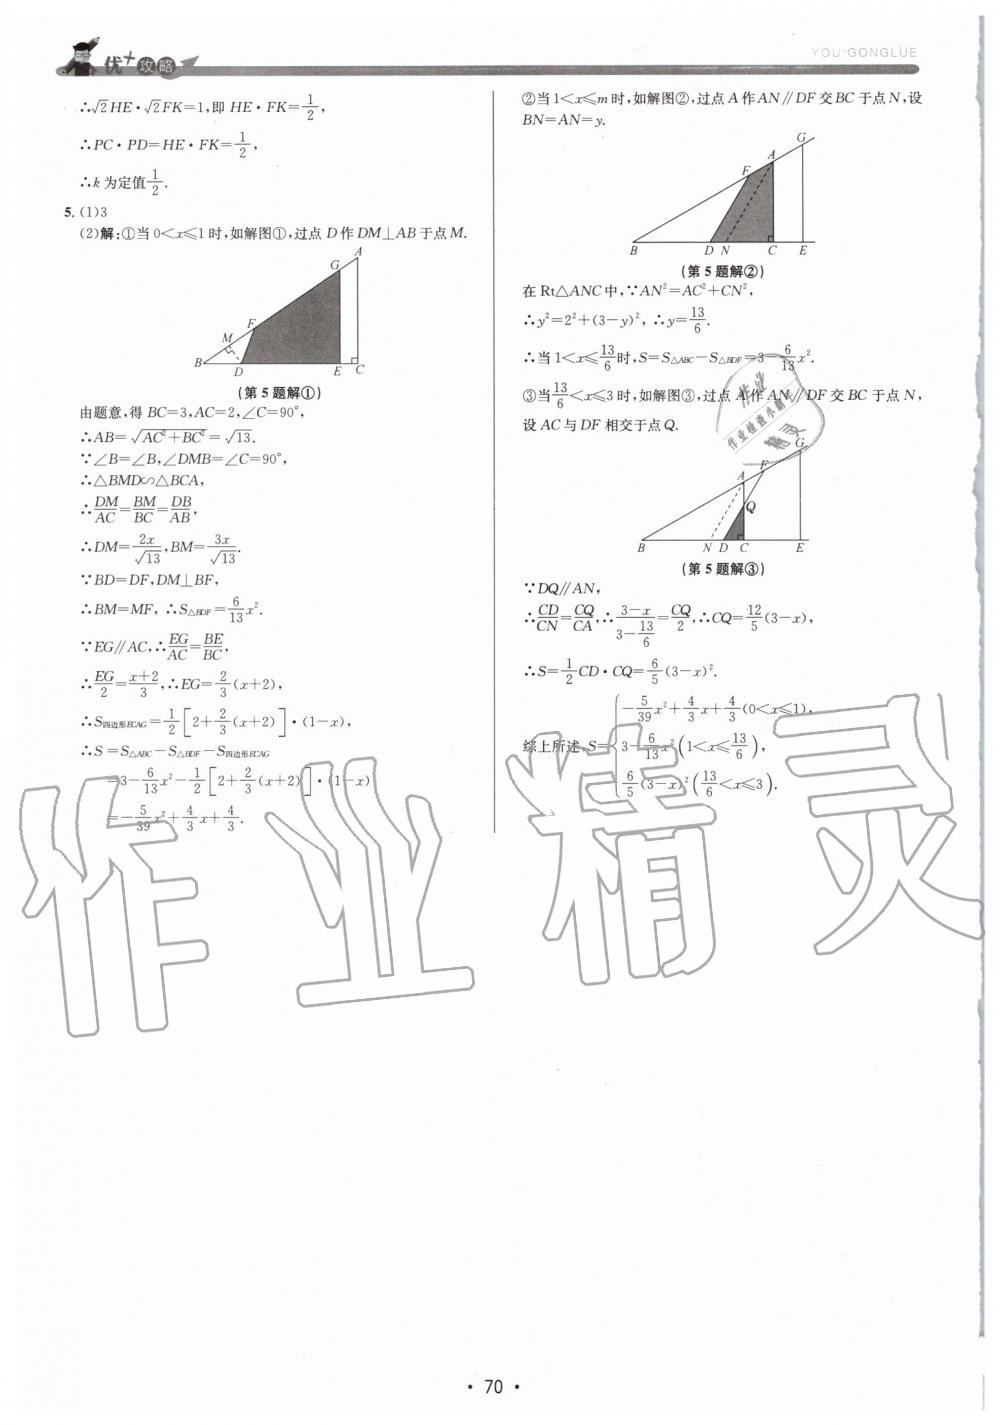 优+攻略
YOU+GONGLÜE
∴√2HE·√2FK=1,即 HE·FK=1/2,
∴PC·PD=HE·FK=1/2,
∴k 为定值1/2.
5.(1)3
(2)解:①当 0<x≤1 时,如解图①,过点 D 作 DM⊥AB 于点 M.
A
G
F
M
B
D
E C
(第 5 题解①)
由题意,得 BC=3,AC=2,∠C=90°,
∴AB=√(AC²+BC²)=√13.
∵∠B=∠B,∠DMB=∠C=90°,
∴△BMD∽△BCA,
∴DM/AC=BM/BC=DB/AB,
∴DM=2x/√13,BM=3x/√13.
∵BD=DF,DM⊥BF,
∴BM=MF, ∴S△BDF=6/13x².
∵EG∥AC,∴EG/AC=BE/BC,
∴EG/2=(x+2)/3,∴EG=2/3(x+2),
∴S四边形ECAG=1/2[2+2/3(x+2)]·(1-x),
∴S=S△ABC-S△BDF-S四边形ECAG
=3-6/13x²-1/2[2+2/3(x+2)]·(1-x)
=-5/39x²+4/3x+4/3.
②当 1<x≤m 时,如解图②,过点 A 作 AN∥DF 交 BC 于点 N,设
BN=AN=y.
G
A
F
B D N C E
(第 5 题解②)
在 Rt△ANC 中,∵AN²=AC²+CN²,
∴y²=2²+(3-y)², ∴y=13/6.
∴当 1<x≤13/6时,S=S△ABC-S△BDF=3-6/13x².
③当13/6<x≤3 时,如解图③,过点 A 作 AN∥DF 交 BC 于点 N,
设 AC 与 DF 相交于点 Q.
G
F
A
Q
B N D C E
(第 5 题解③)
∵DQ∥AN,
∴CD/CN=CQ/CA,∴(3-x)/(3-13/6)=CQ/2,∴CQ=12/5(3-x),
∴S=1/2CD·CQ=6/5(3-x)².
综上所述,S={-5/39x²+4/3x+4/3(0<x≤1),
3-6/13x²(1<x≤13/6),
6/5(3-x)²(13/6<x≤3).
作业精灵
作业
作业检查小助手
精灵
·70·